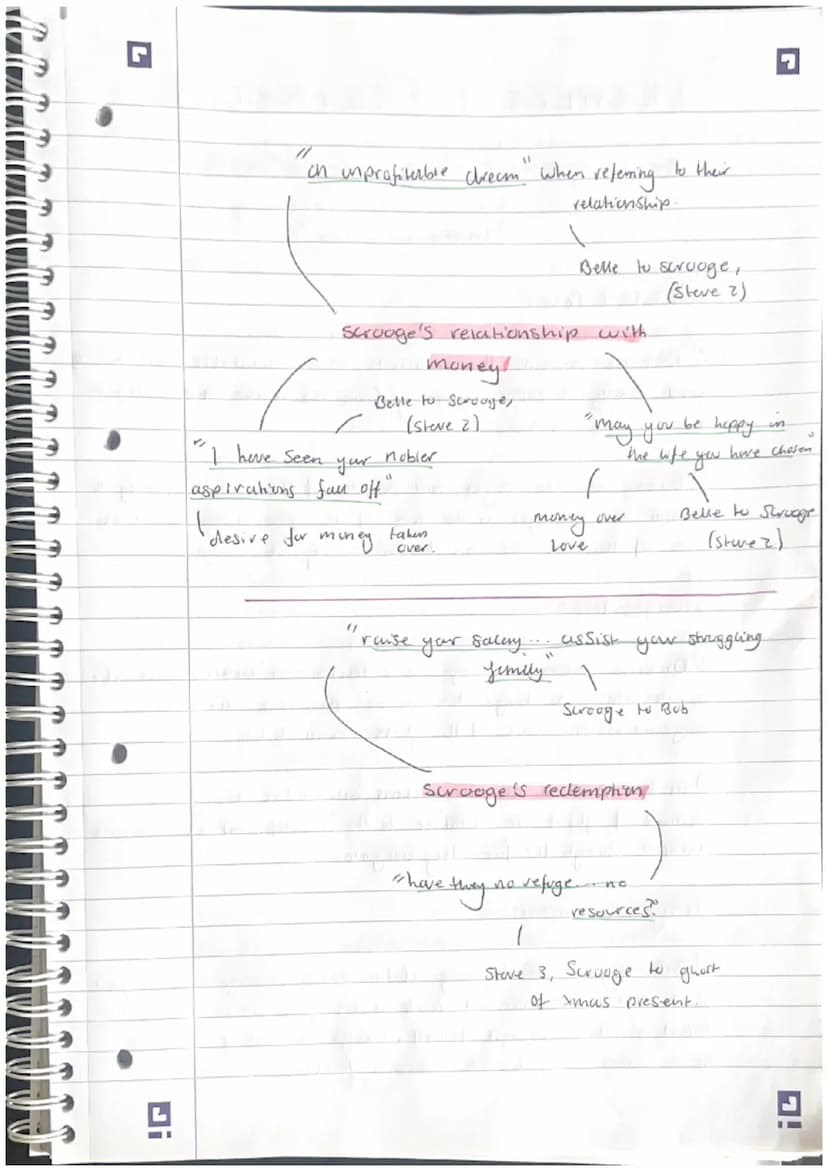 "an unprofitable dream" when referring to their
relationship.
Belle to scrooge,
(Stave 2)
Scrooge's relationship with
money
Belle to Scrooge,
(Stave 2)
"I have seen your nobler
aspirations fall off"
desire for money taken
over.
"May you be happy in
the life you have chosen"
money over
Love
Belle to Scrooge
(Stave 2)
"raise your salary... assist your struggling
family"
Scrooge to Bob
Scrooge's redemption
"have they no refuge... no
resources?"
Stave 3, Scrooge to ghost
of Xmas present.